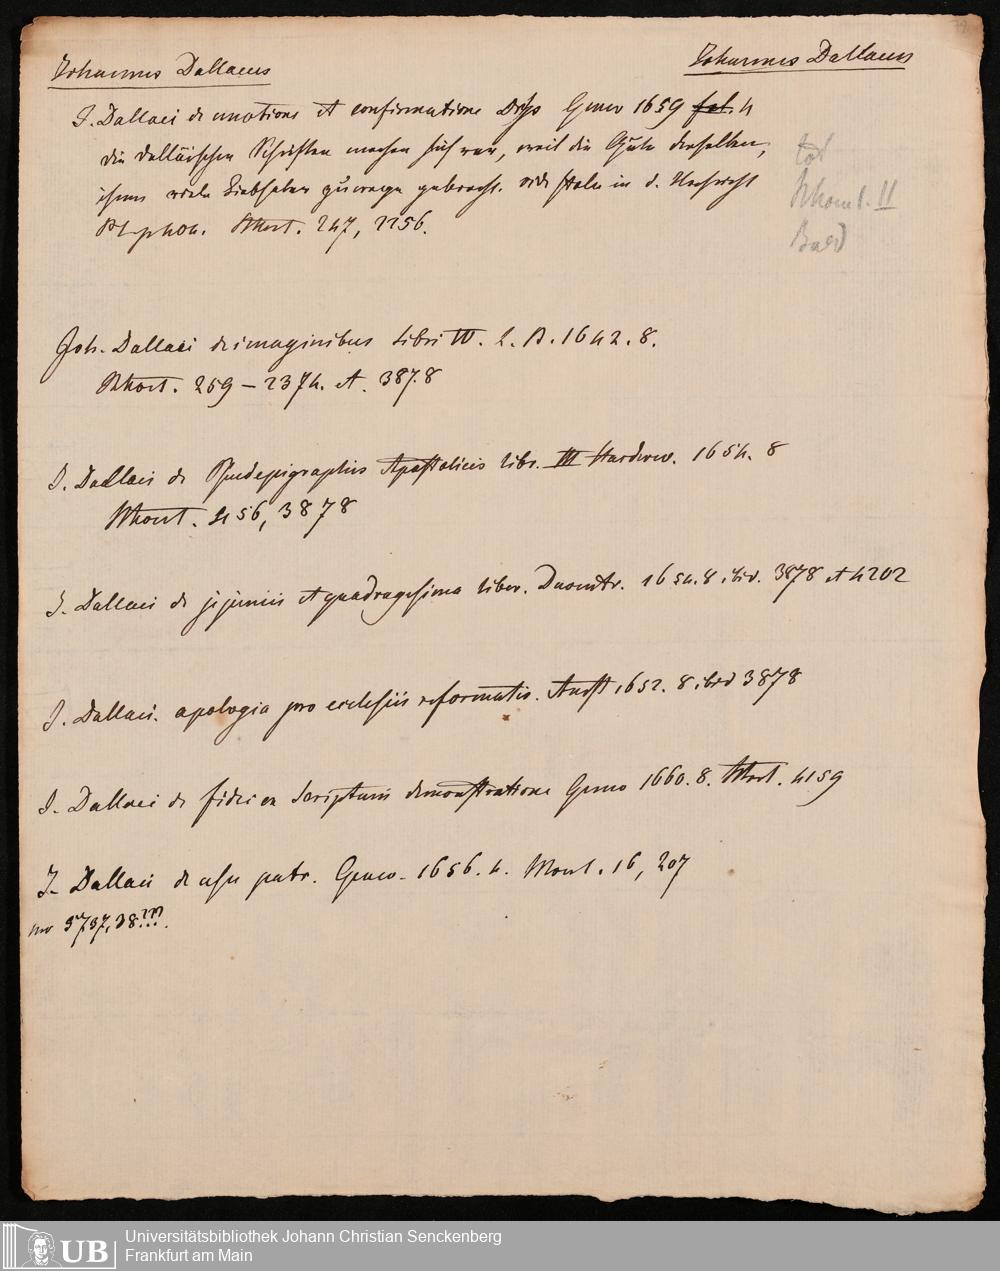 Johannes Dallaeus
Johannes Dallaeus
J. Dallaei de unctione et confirmatione Genev 1659 fol. 4
die Dalläischen Schriften machen sich rar, weil die Güte derselben,
ihnen viele Liebhaber zuwege gebracht. vide in d.
247, 2256.
tot
II
Joh. Dallaei de imaginibus libri IV. L. B. 1642. 8.
259 – 2374. et. 387.8
J. Dallaei de Pseudepigraphis Apostolicis libr. III Harderw. 1654. 8
456, 3878
J. Dallaei de jejuniis et quadragesima liber. Daventr. 1654. 8. ibid. 3878 et 4202
J. Dallaei. apologia pro ecclesiis reformatis. Amst 1652. 8. ibid 3878
J. Dallaei de fidei ex scripturis demonstratione Genev 1660. 8. 4159
J. Dallaei de usu patr. Genev. 1656. 4. 16, 207
5737, 38???.
UB
Universitätsbibliothek Johann Christian Senckenberg
Frankfurt am Main